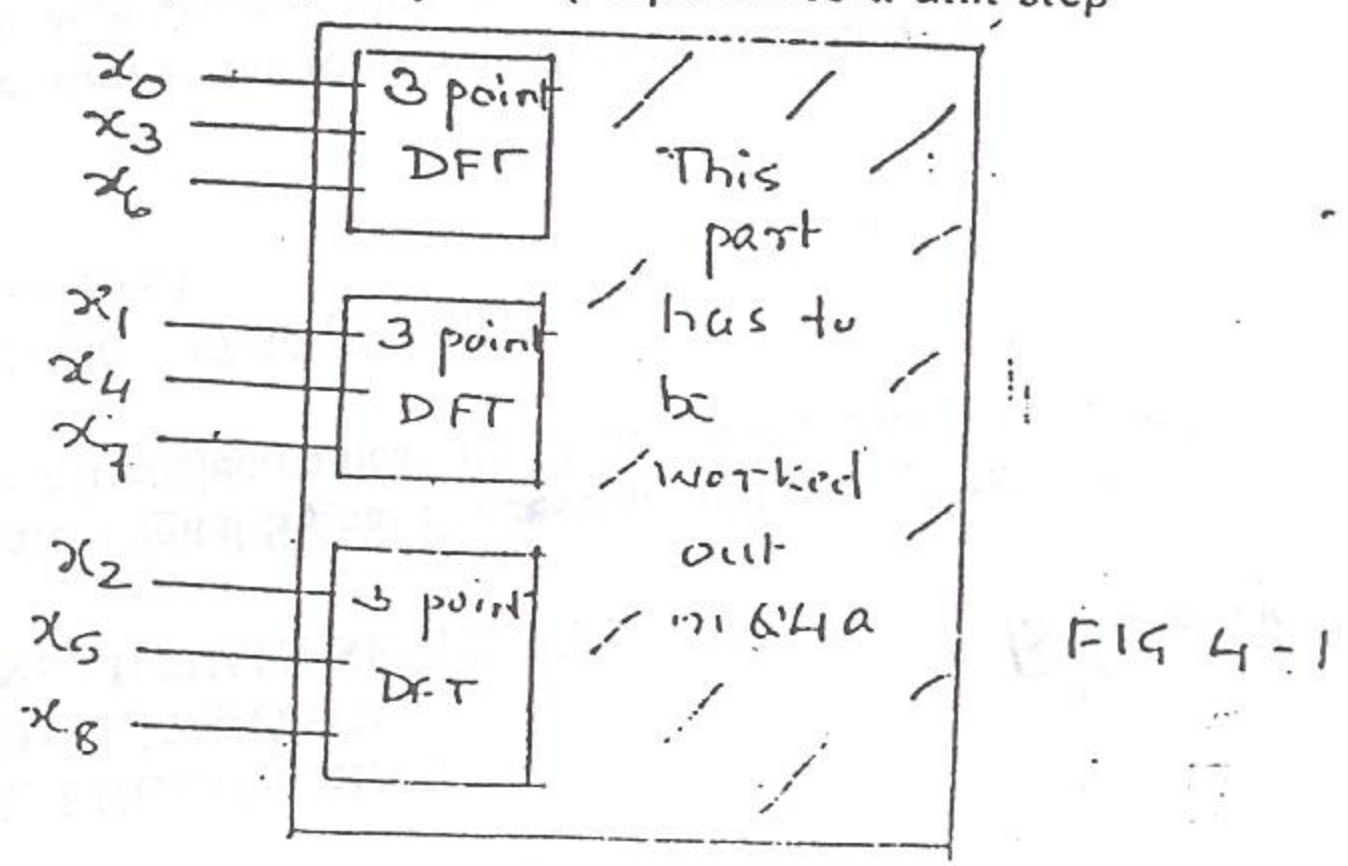 a unit step
x0
x3
x6
3 point
DFT
x1
x4
x7
3 point
DFT
x2
x5
x8
3 point
DFT
This
part
has to
be
worked
out
in Q4a
FIG 4-1